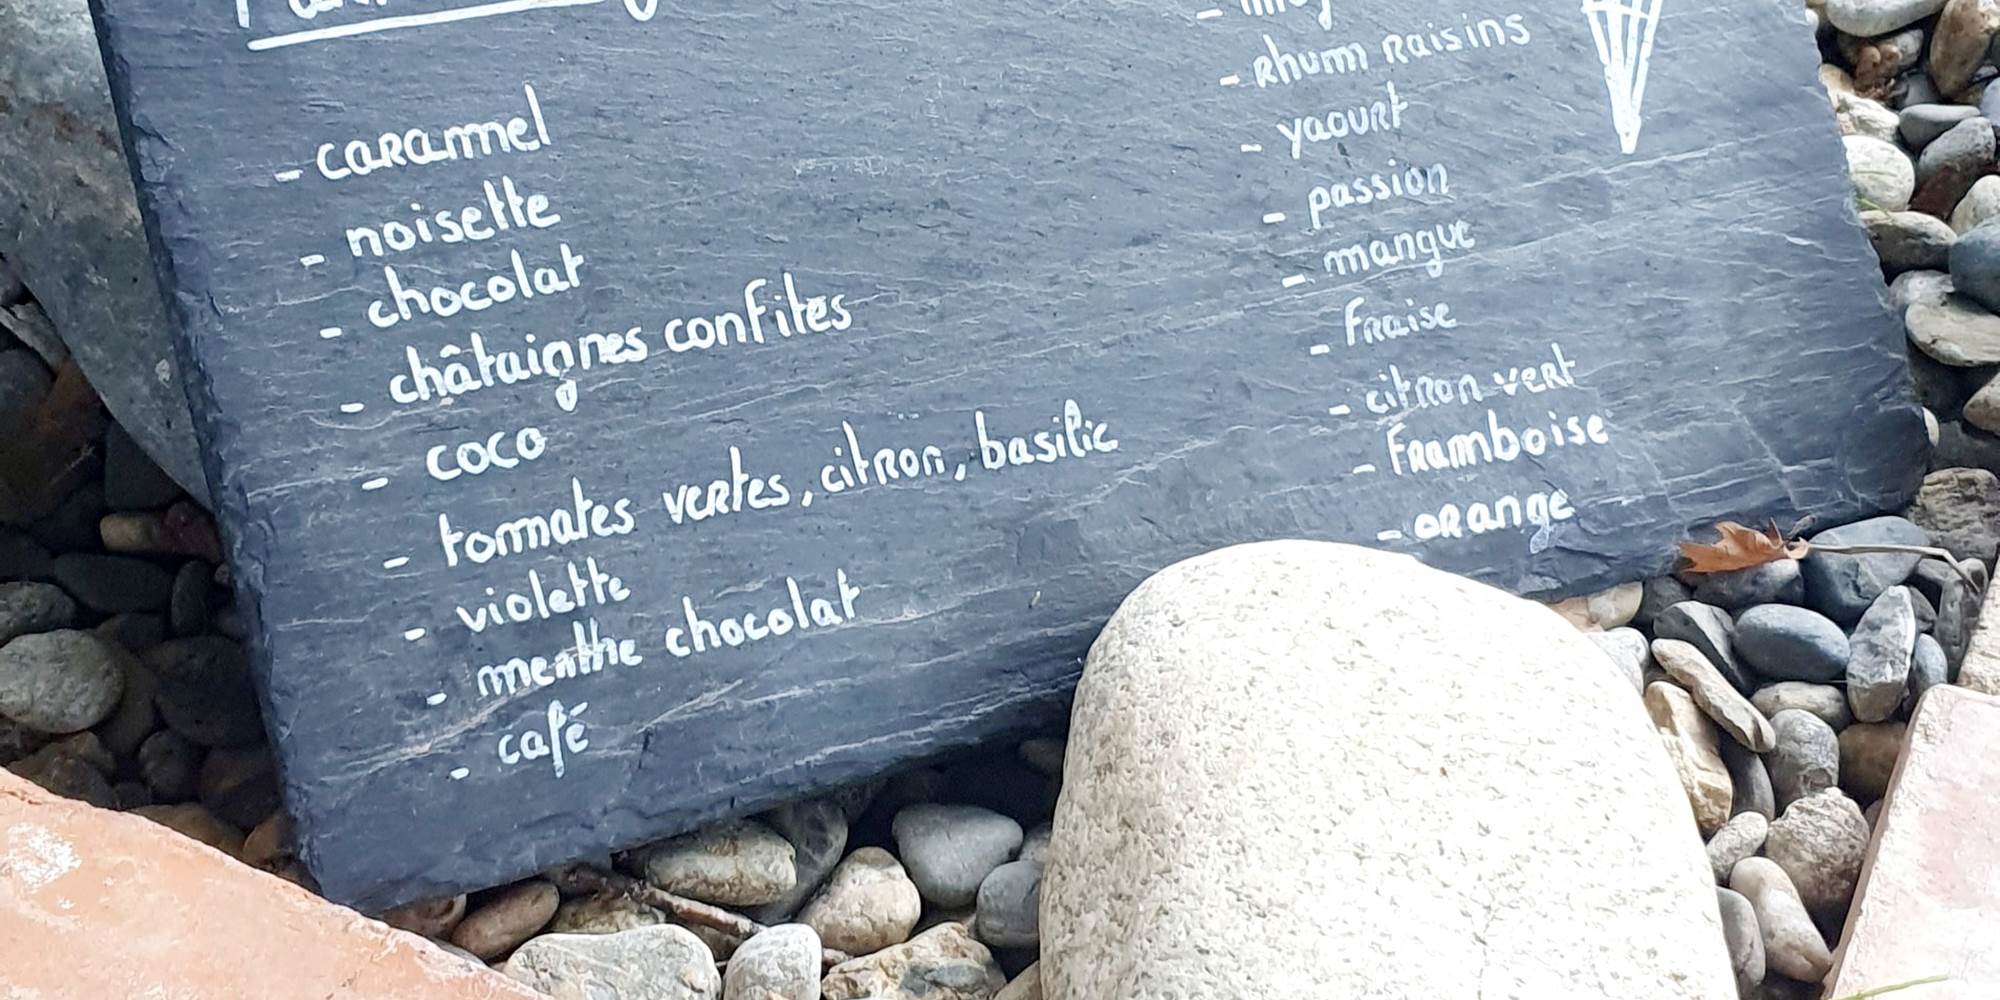 - caramel
- noisette
- chocolat
- châtaignes confites
- coco
- tomates vertes, citron, basilic
- violette
- menthe chocolat
- café
- rhum raisins
- yaourt
- passion
- mangue
- Fraise
- citron vert
- Framboise
- orange